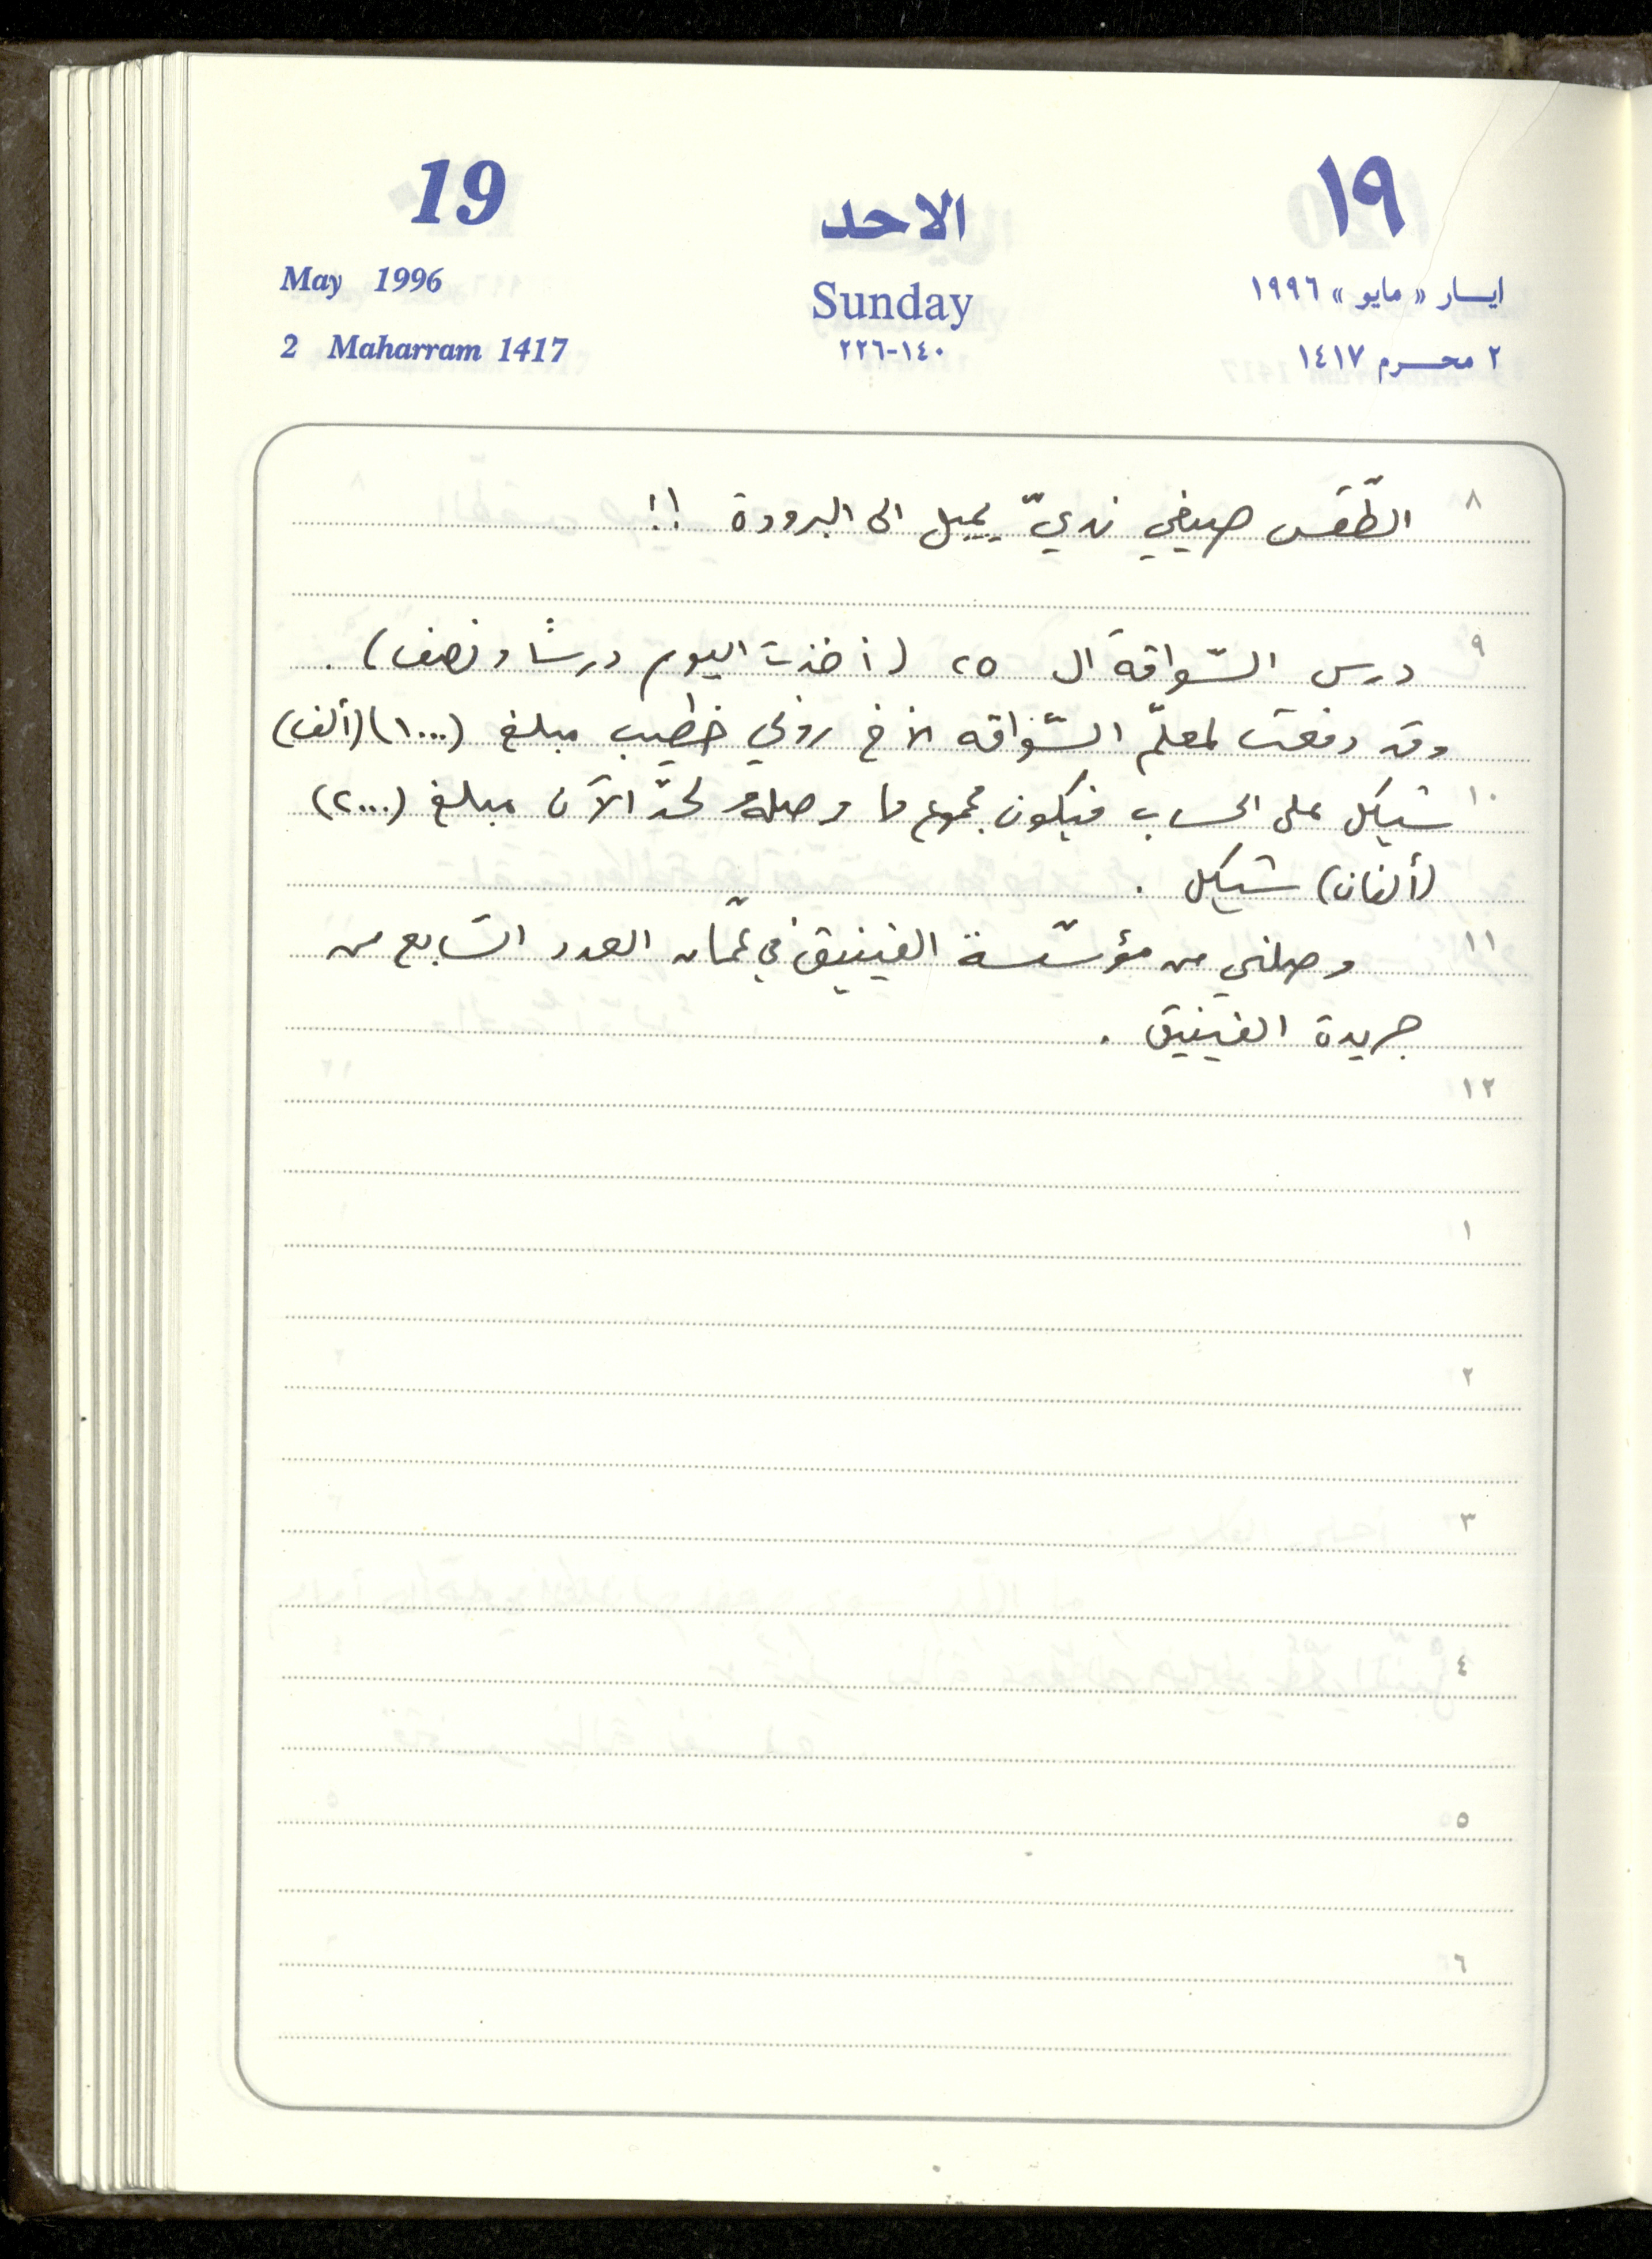 19 الاحد ١٩
May 1996 Sunday ايسار « مايو » ١٩٩٦
2 Maharram 1417 ٢٢٦-١٤٠ ٢ محرم ١٤١٧
٨ الطّقس صيفي نديّ يميل الى البرودة !!
٩ درس السّواقة ال ٢٥ (أخذت اليوم درسًا ونصف) .
وقد دفعت لمعلّم السّواقه الأخ روني خطيب مبلغ (١٠٠٠) (ألف)
١٠ شيكل على الحساب فيكون مجموع ما وصله لحدّ الآن مبلغ (٢٠٠٠)
(ألفان) شيكل .
١١ وصلني من مؤسّسة الفينيق في عمّان العدد السّابع من
جريدة الفينيق .
١٢
١
٢
٣
٤
٥
٦